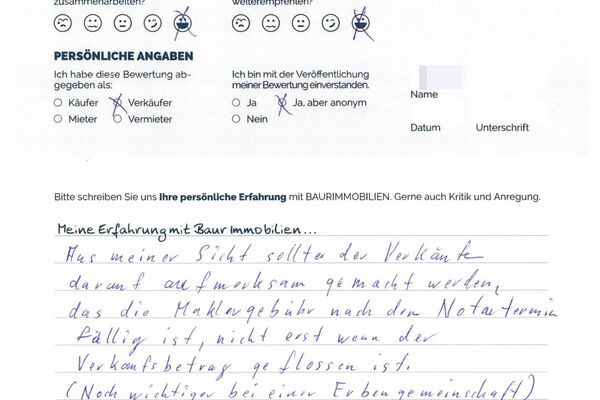 zusammenarbeiten? weiterempfehlen?
PERSÖNLICHE ANGABEN
Ich habe diese Bewertung ab- Ich bin mit der Veröffentlichung
gegeben als: meiner Bewertung einverstanden.
Käufer Verkäufer Ja Ja, aber anonym Name
Mieter Vermieter Nein
Datum Unterschrift
Bitte schreiben Sie uns Ihre persönliche Erfahrung mit BAURIMMOBILIEN. Gerne auch Kritik und Anregung.
Meine Erfahrung mit Baur Immobilien...
Aus meiner Sicht sollte der Verkäufer
darauf aufmerksam gemacht werden,
das die Maklergebühr nach dem Notartermin
fällig ist, nicht erst wenn der
Verkaufsbetrag geflossen ist.
(Noch wichtiger bei einer Erbengemeinschaft)